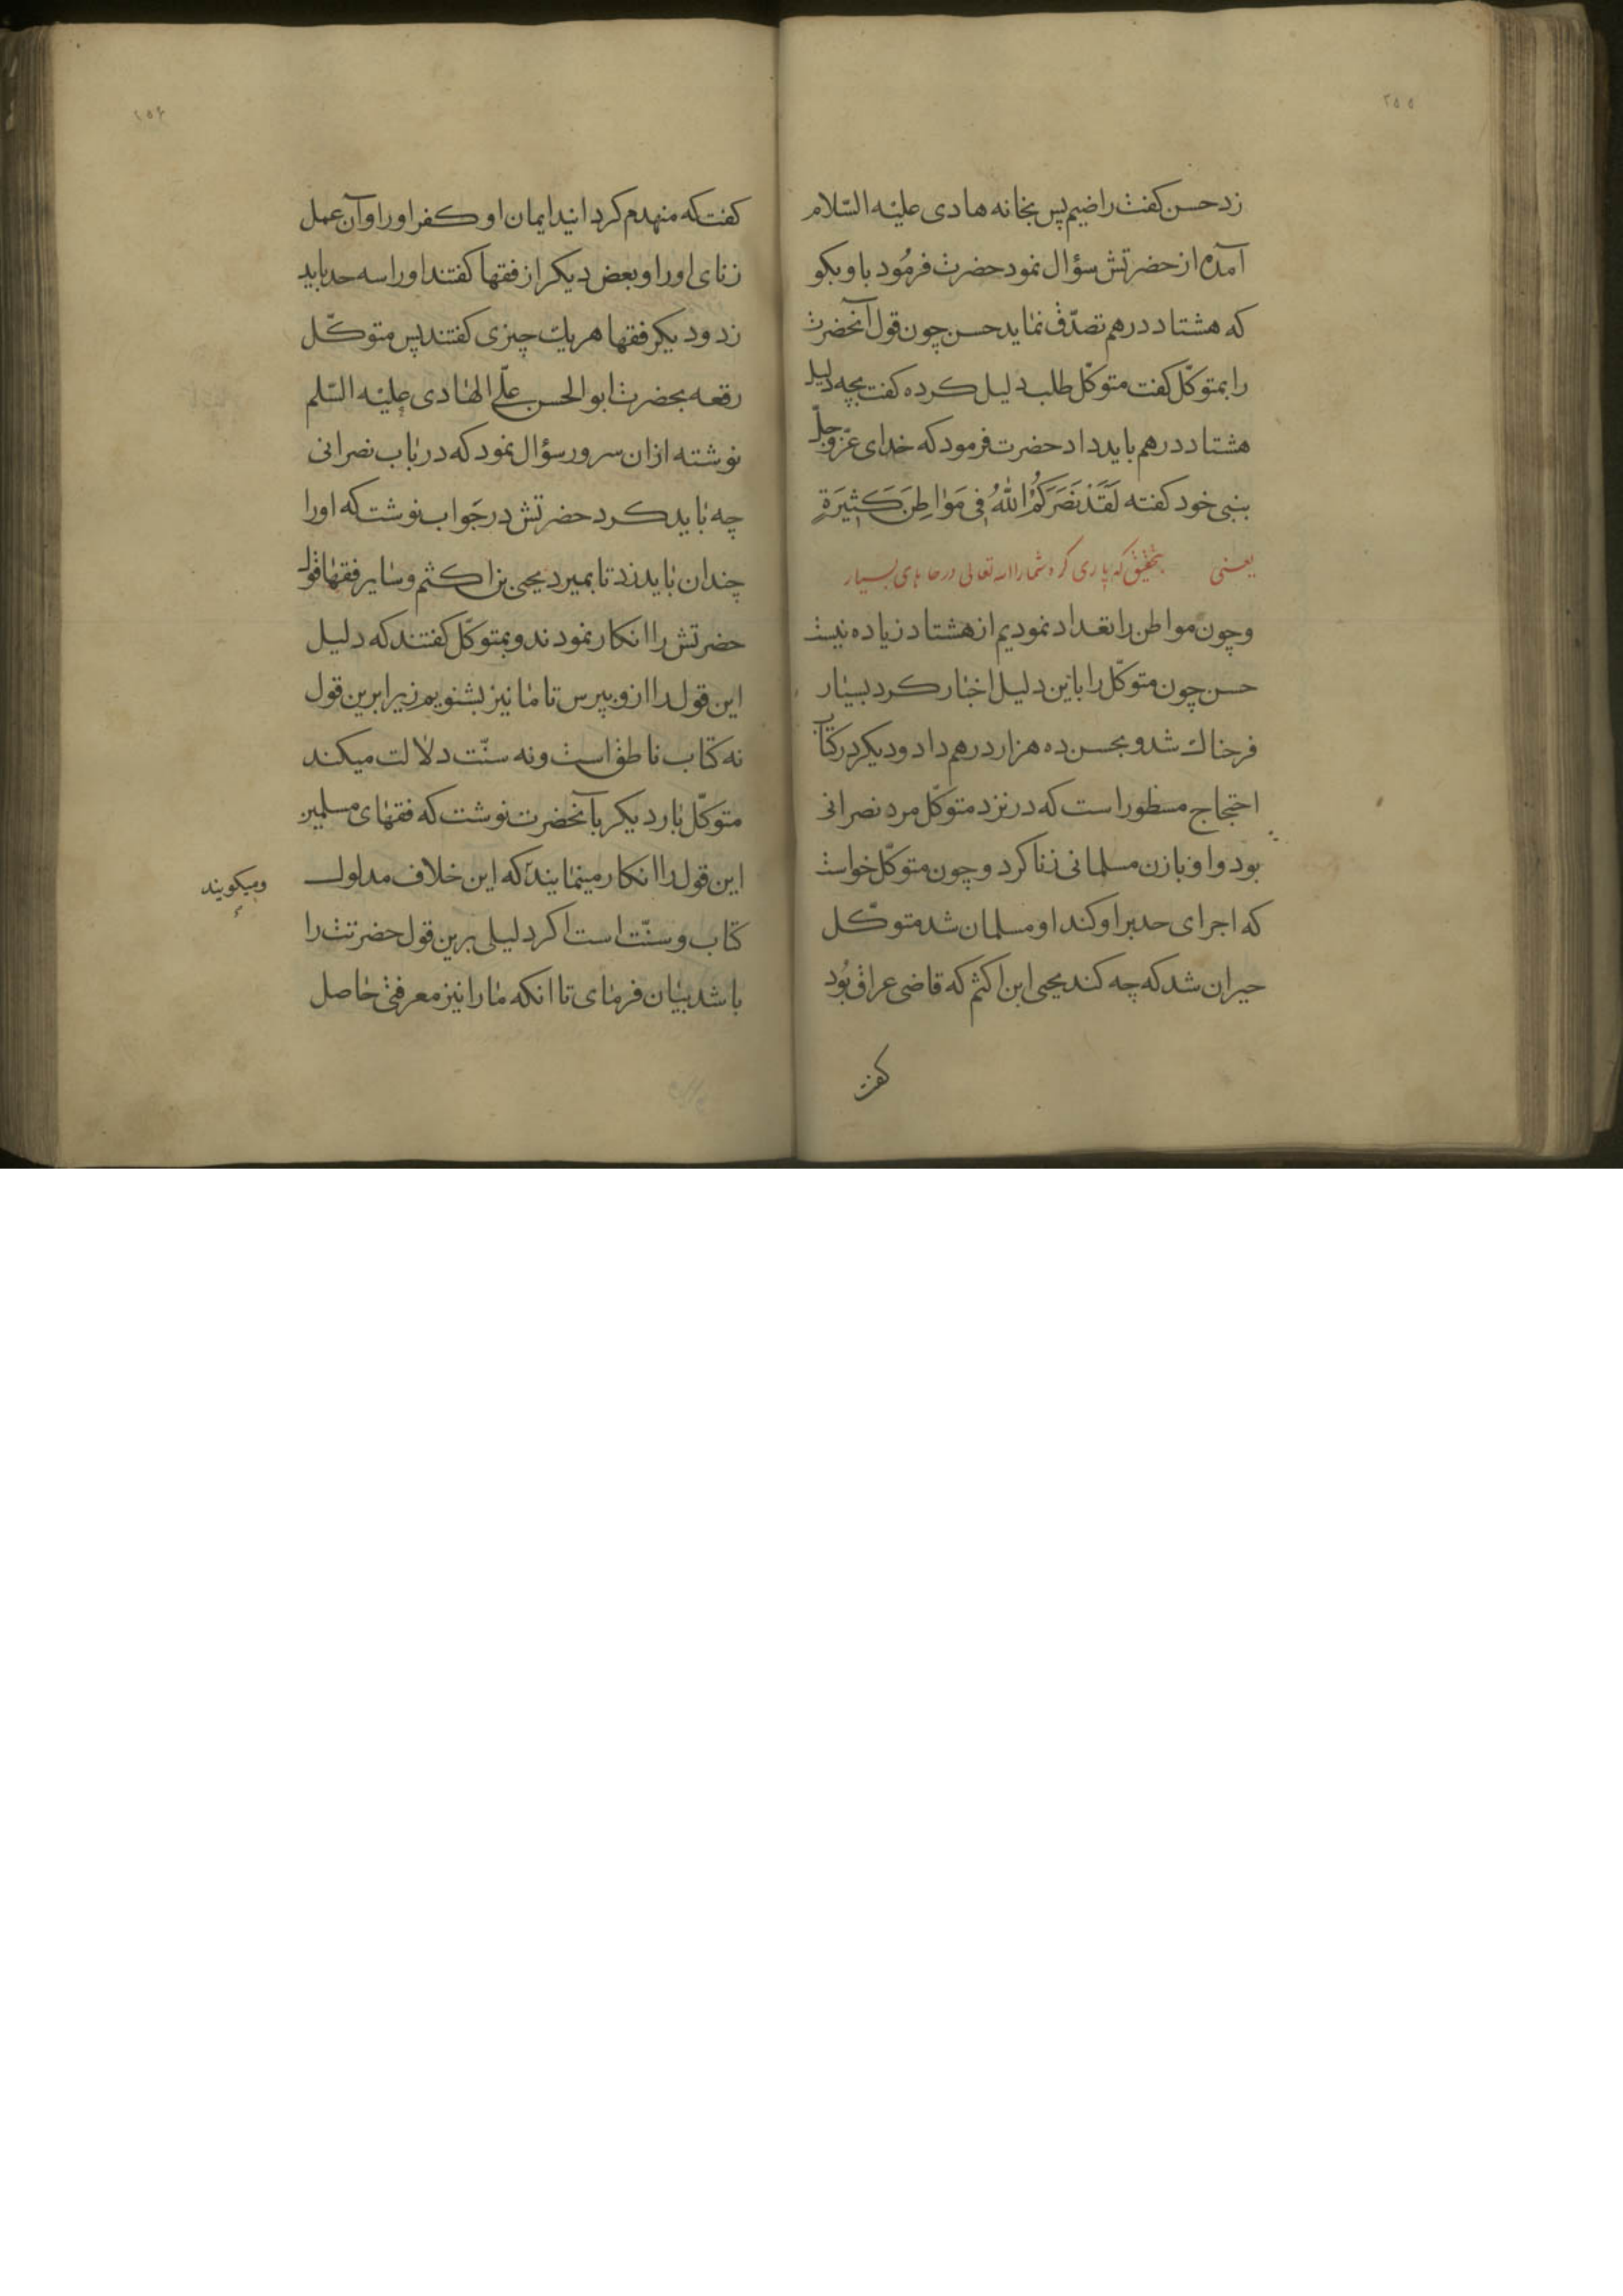 ۲۵۵
زد حسن کفت راضیم پس بخانه هادی علیه السّلام
آمده از حضرتش سؤال نمود حضرت فرمُود باو بکو
که هشتاد درهم تصدّق نماید حسن چون قول آنحضرت
را بمتوکّل کفت متوکّل طلب دلیل کرده کفت بچه دلیل
هشتاد درهم باید داد حضرت فرمود که خدای عزّ وجلّ
بنبی خود کفته لَقَدْ نَصَرَكُمُ اللّٰهُ فِی مَوَاطِنَ كَثِیرَةٍ
یعنی بتحقیق که یاری کرد شما را الله تعالی در جاهای بسیار
و چون مواطن را تعداد نمودیم از هشتاد زیاده نیست
حسن چون متوکّل را باین دلیل اخبار کرد بسیار
فرحناك شد و بحسن ده هزار درهم داد و دیکر در کتاب
احتجاج مسطور است که در نزد متوکّل مرد نصرانی
بود و او با زن مسلمانی زنا کرد و چون متوکّل خواست
که اجرای حد بر او کند او مسلمان شد متوکّل
حیران شد که چه کند یحیی ابن اکثم که قاضی عراق بُود
کفت
۲۵۶
کفت که منهدم کردانید ایمان او کفر او را و آن عمل
زنای او را و بعض دیکر از فقها کفتند او را سه حد باید
زد و دیکر فقها هر یك چیزی کفتند پس متوکّل
رقعه بحضرت ابو الحسن علّی الهادی علیه السّلم
نوشته ازان سرور سؤال نمود که در باب نصرانی
چه باید کرد حضرتش در جَواب نوشت که او را
چندان باید زد تا بمیرد یحیی بن اکثم و سایر فقها قول
حضرتش را انکار نمودند و بمتوکّل کفتند که دلیل
این قول را ازو بپرس تا ما نیز بشنویم زیرا برین قول
نه کتاب ناطق است و نه سنّت دلالت میکند
متوکّل بار دیکر بآنحضرت نوشت که فقهای مسلمین
این قول را انکار مینمایند که این خلاف مدلول
و میکویند
کتاب و سنّت است اکر دلیلی برین قول حضرتت را
باشد بیان فرمای تا انکه ما را نیز معرفتی حاصل